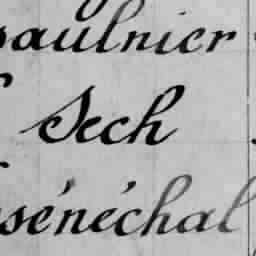 saulnier
Sech
sénéchal